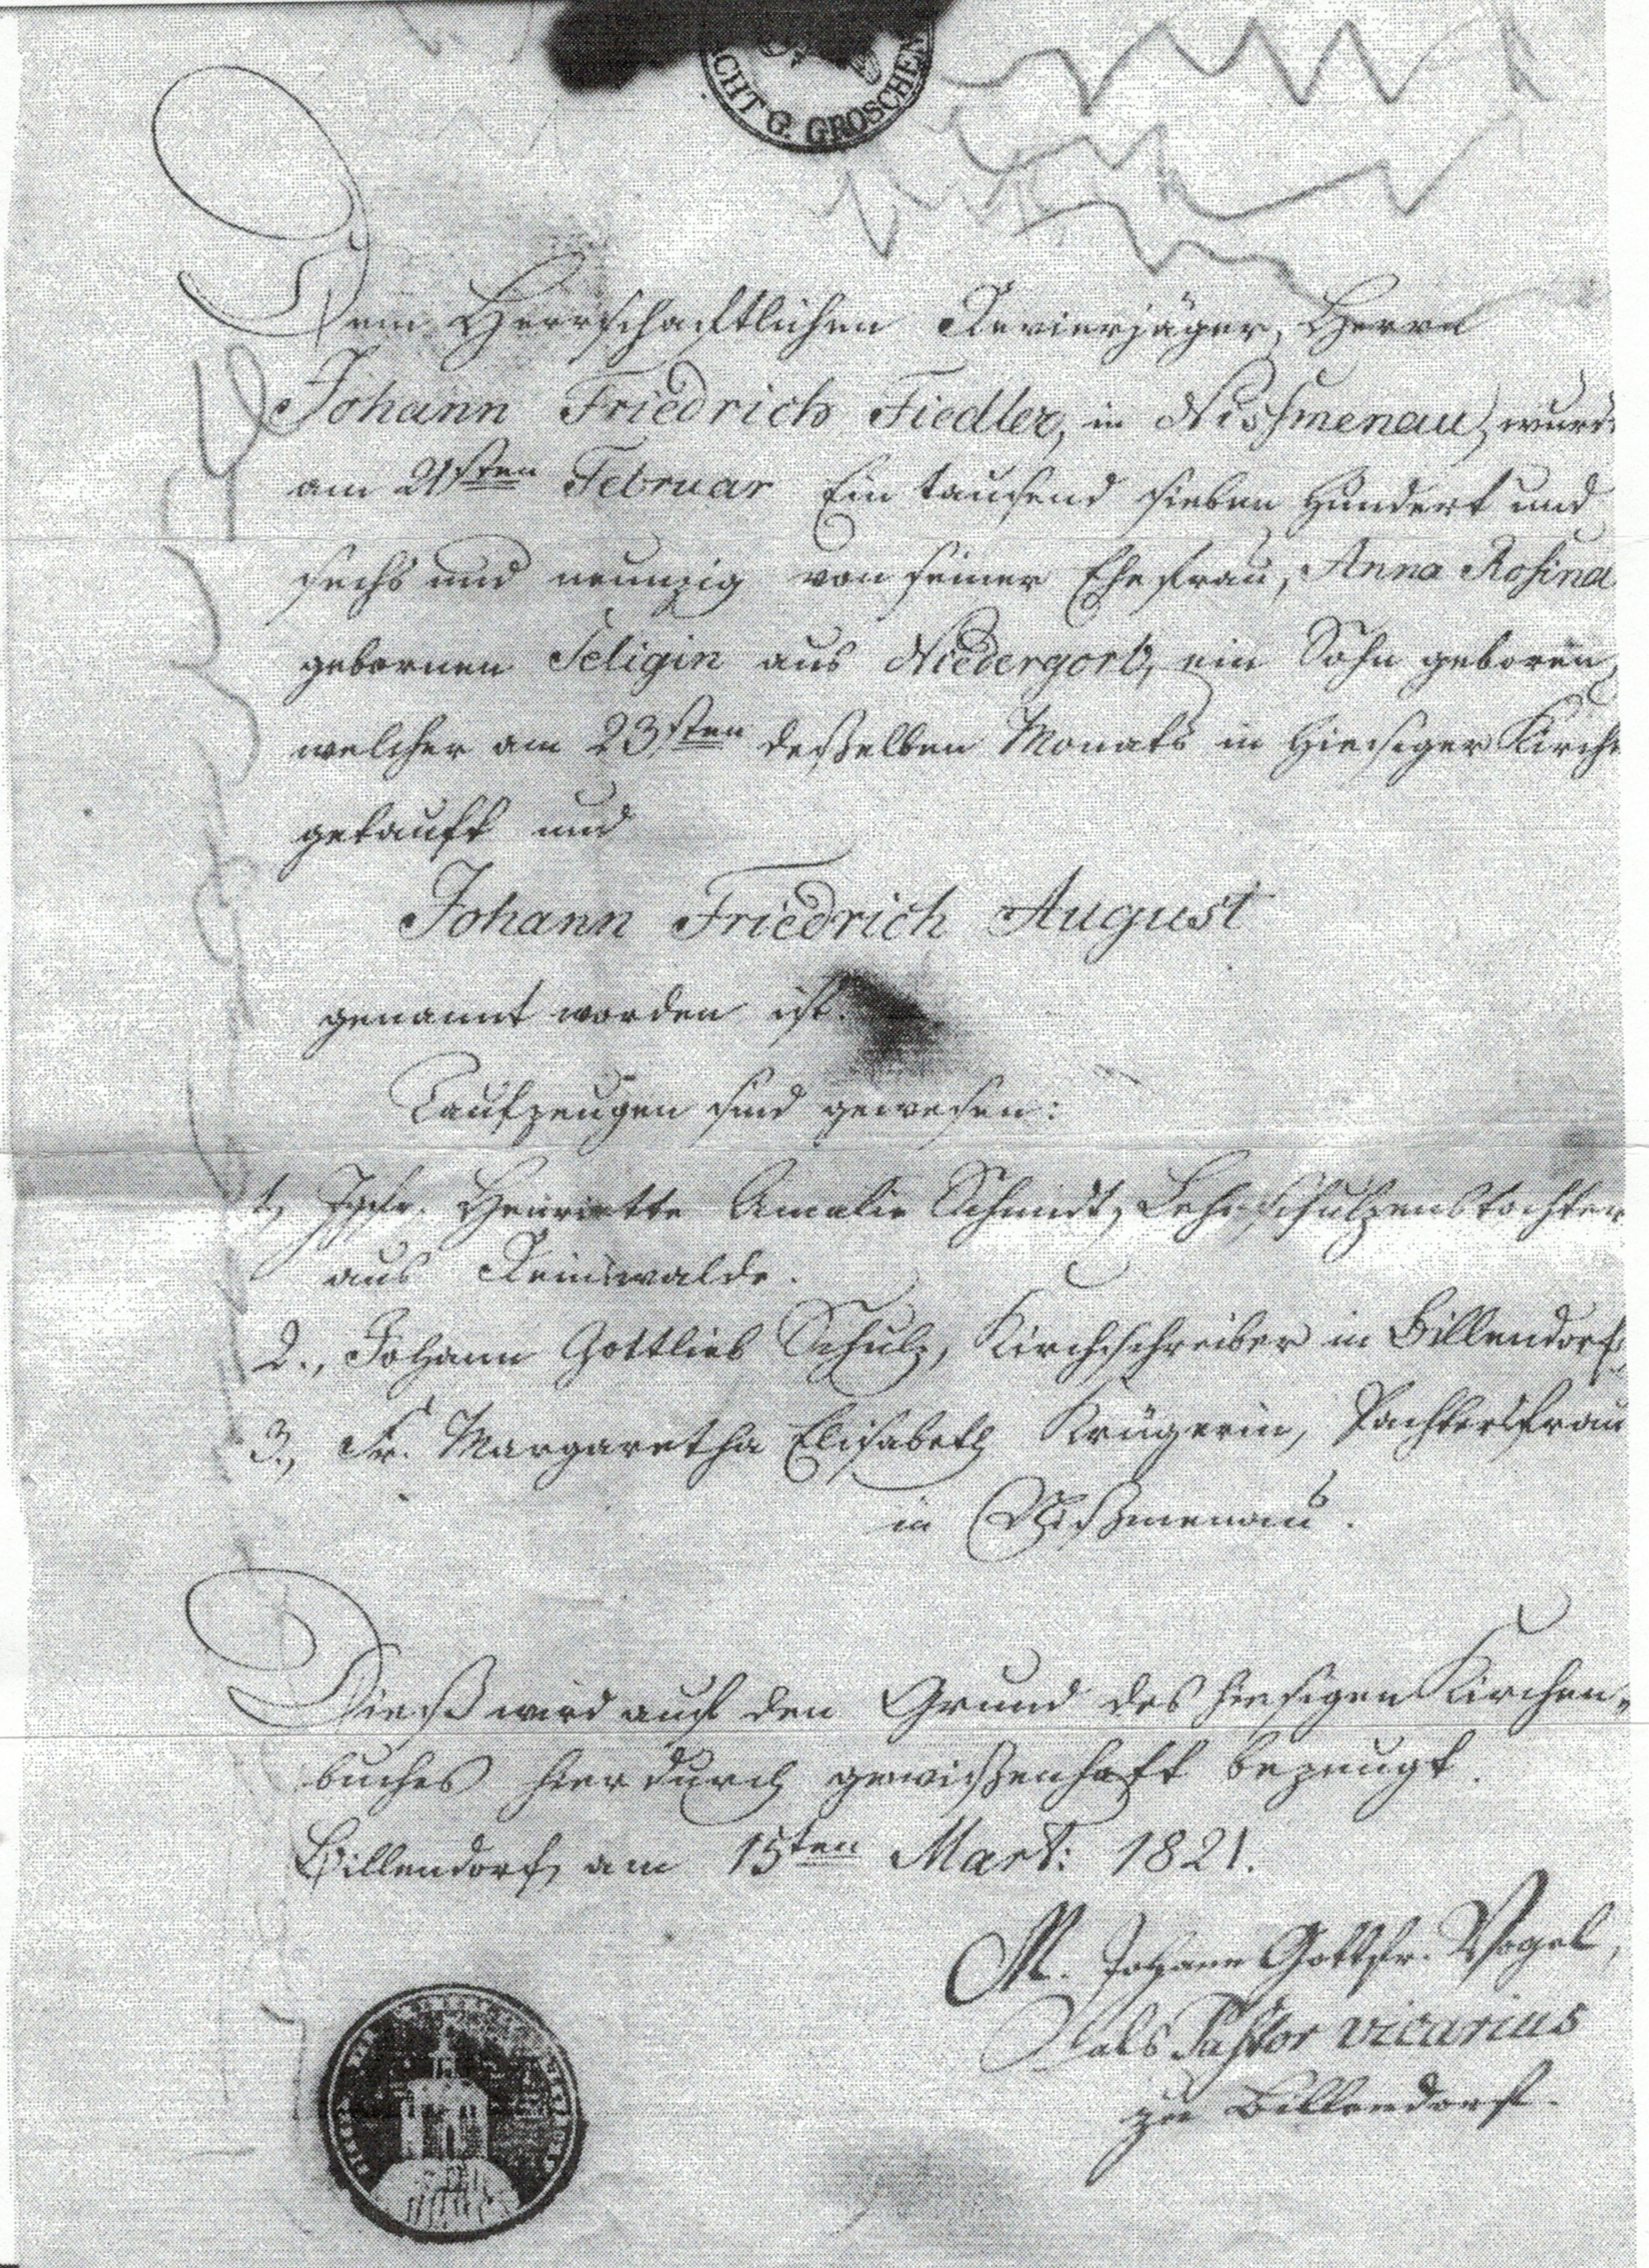 CHT G. GROSCHEN
Dem Herrschaftlichen Revierjäger, Herrn
Johann Friedrich Fiedler, in Nissmenau, wurde
am 21sten Februar Ein tausend sieben Hundert und
sechs und neunzig von seiner Ehefrau, Anna Rosina
gebornen Seligin aus Niedergorb, ein Sohn geboren,
welcher am 23sten deßelben Monats in hiesiger Kirche
getauft und
Johann Friedrich August
genannt worden ist.
Taufzeugen sind gewesen:
1, Jgfr. Henriette Amalie Schmidt, Lehnschulzenstochter
aus Reinswalde.
2., Johann Gottlieb Schulz, Kirchschreiber in Billendorf,
3., Fr. Margaretha Elisabeth Krügerin, Pachtersfrau
in Nißmenau.
Dieß wird auf den Grund des hiesigen Kirchen-
buches hierdurch gewißenhaft bezeugt.
Billendorf, am 15ten Mart: 1821.
M. Johann Gottfr. Vogel,
als Pastor vicarius
zu Billendorf.